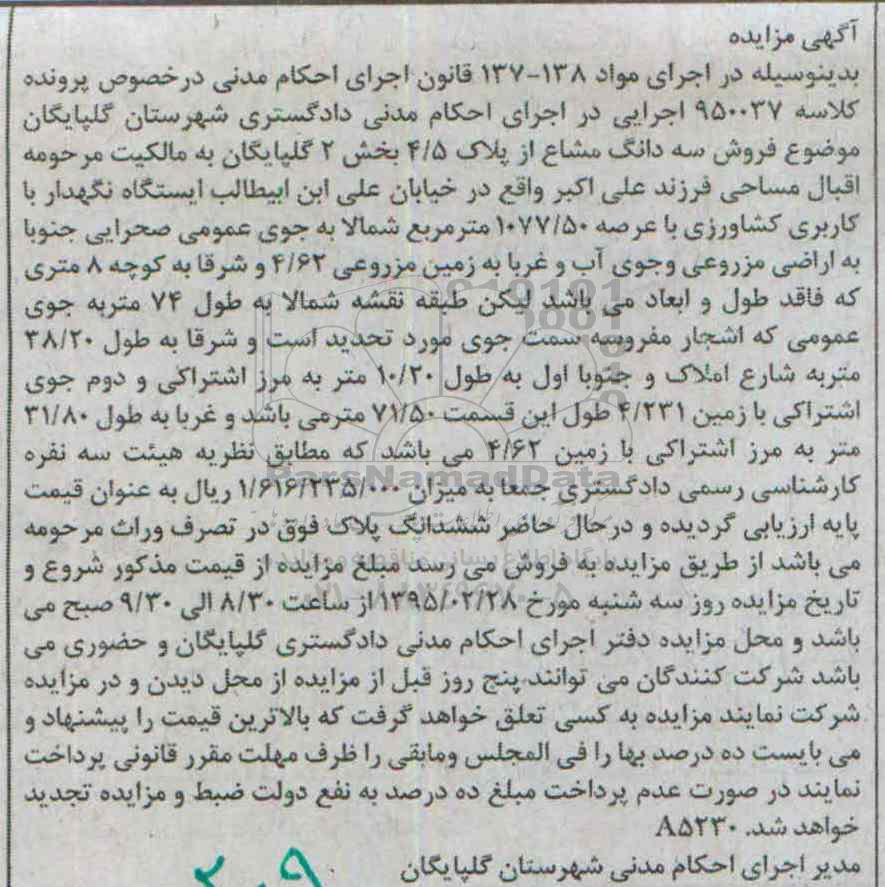 آگهی مزایده
بدینوسیله در اجرای مواد ۱۳۸-۱۳۷ قانون اجرای احکام مدنی درخصوص پرونده
کلاسه ۹۵۰۰۳۷ اجرایی در اجرای احکام مدنی دادگستری شهرستان گلپایگان
موضوع فروش سه دانگ مشاع از پلاک ۴/۵ بخش ۲ گلپایگان به مالکیت مرحومه
اقبال مساحی فرزند علی اکبر واقع در خیابان علی ابن ابیطالب ایستگاه نگهدار با
کاربری کشاورزی با عرصه ۱۰۷۷/۵۰ مترمربع شمالا به جوی عمومی صحرایی جنوبا
به اراضی مزروعی وجوی آب و غربا به زمین مزروعی ۴/۶۲ و شرقا به کوچه ۸ متری
که فاقد طول و ابعاد می باشد لیکن طبقه نقشه شمالا به طول ۷۴ متربه جوی
عمومی که اشجار مفروسه سمت جوی مورد تحدید است و شرقا به طول ۳۸/۲۰
متربه شارع املاک و جنوبا اول به طول ۱۰/۲۰ متر به مرز اشتراکی و دوم جوی
اشتراکی با زمین ۴/۲۳۱ طول این قسمت ۷۱/۵۰ مترمی باشد و غربا به طول ۳۱/۸۰
متر به مرز اشتراکی با زمین ۴/۶۲ می باشد که مطابق نظریه هیئت سه نفره
کارشناسی رسمی دادگستری جمعا به میزان ۱/۶۱۶/۲۳۵/۰۰۰ ریال به عنوان قیمت
پایه ارزیابی گردیده و درحال حاضر ششدانگ پلاک فوق در تصرف وراث مرحومه
می باشد از طریق مزایده به فروش می رسد مبلغ مزایده از قیمت مذکور شروع و
تاریخ مزایده روز سه شنبه مورخ ۱۳۹۵/۰۲/۲۸ از ساعت ۸/۳۰ الی ۹/۳۰ صبح می
باشد و محل مزایده دفتر اجرای احکام مدنی دادگستری گلپایگان و حضوری می
باشد شرکت کنندگان می توانند پنج روز قبل از مزایده از محل دیدن و در مزایده
شرکت نمایند مزایده به کسی تعلق خواهد گرفت که بالاترین قیمت را پیشنهاد و
می بایست ده درصد بها را فی المجلس ومابقی را ظرف مهلت مقرر قانونی پرداخت
نمایند در صورت عدم پرداخت مبلغ ده درصد به نفع دولت ضبط و مزایده تجدید
خواهد شد. A۵۲۳۰
مدیر اجرای احکام مدنی شهرستان گلپایگان
ParsNamadData